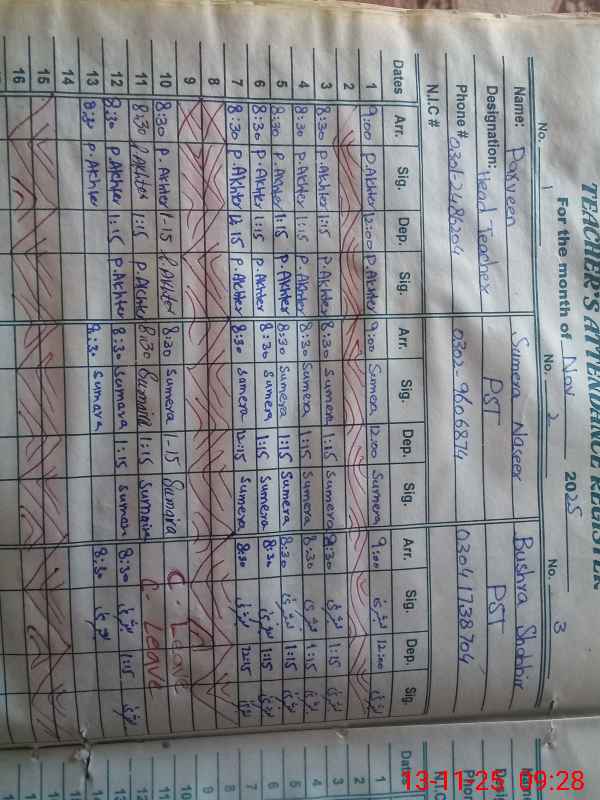 TEACHER'S ATTENDANCE REGISTER
For the month of Nov 2025
No. 1 No. 2 No. 3
Name: Parveen Sumera Naseer Bushra Shabbir
Designation: Head Teacher PST PST
Phone # 0302-9606874 03041738704
N.I.C #
Dates Arr. Sig. Dep. Sig. Arr. Sig. Dep. Sig. Arr. Sig. Dep. Sig.
1 9:00 P.Akhter 12:00 P.Akhter 9:00 Sumera 12:00 Sumera 9:00 12:00
2
3 8:30 P.Akhter 1:15 P.Akhter 8:30 Sumera 1:15 Sumera 8:30 1:15
4 8:30 P.Akhter 1:15 P.Akhter 8:30 Sumera 1:15 Sumera 8:30 1:15
5 8:30 P.Akhter 1:15 P.Akhter 8:30 Sumera 1:15 Sumera 8:30 1:15
6 8:30 P.Akhter 1:15 P.Akhter 8:30 Sumera 1:15 Sumera 8:30 1:15
7 8:30 P.Akhter 12:15 P.Akhter 8:30 Sumera 12:15 Sumera 8:30 12:15
8
9
10 8:30 P.Akhter 1-15 P.Akhter 8:30 Sumera 1-15 Sumaira C. Leave
11 8:30 P.Akhter 1:15 P.Akhter 8:30 Sumaira 1:15 Sumaira C- Leave
12 8:30 P.Akhter 1:15 P.Akhter 8:30 Sumara 1:15 8:30 1:15
13 8:30 P.Akhter 8:30 Sumara 8:30
14
15
16
Dates
1
13-11-25 09:28